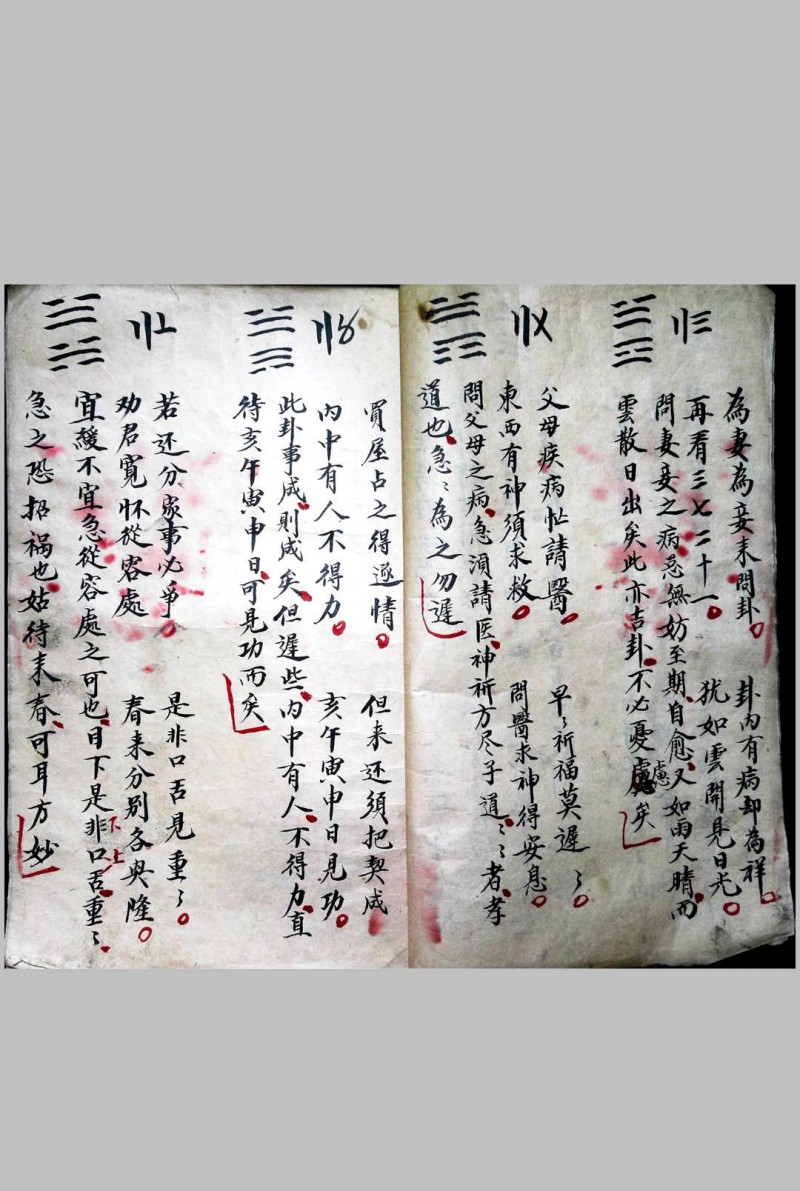 〢三
為妻為妾来問卦 卦内有病却為祥
再看三七二十一 犹如雲開見日光
問妻妾之病慈無妨至期自愈又如雨天晴而
雲散日出矣此亦吉卦不必憂慮矣
〢〤
父母疾病忙請醫 早〻祈福莫遲〻
東西有神須求救 問醫求神得安息
問父母之病急須請医神祈方尽子道〻〻者孝
道也急〻為之勿遲
〢〥
買屋占之得遂情 但来还須把契成
内中有人不得力 亥午寅申日見功
此卦事成則成矣但遲些内中有人不得力直
待亥午寅申日可見功而矣
〢〦
若还分家事必爭 是非口舌見重〻
劝君寛怀從容處 春来分别各興隆
宜緩不宜急從容處之可也目下是非口舌重〻
下上
急之恐招祸也姑待来春可耳方妙